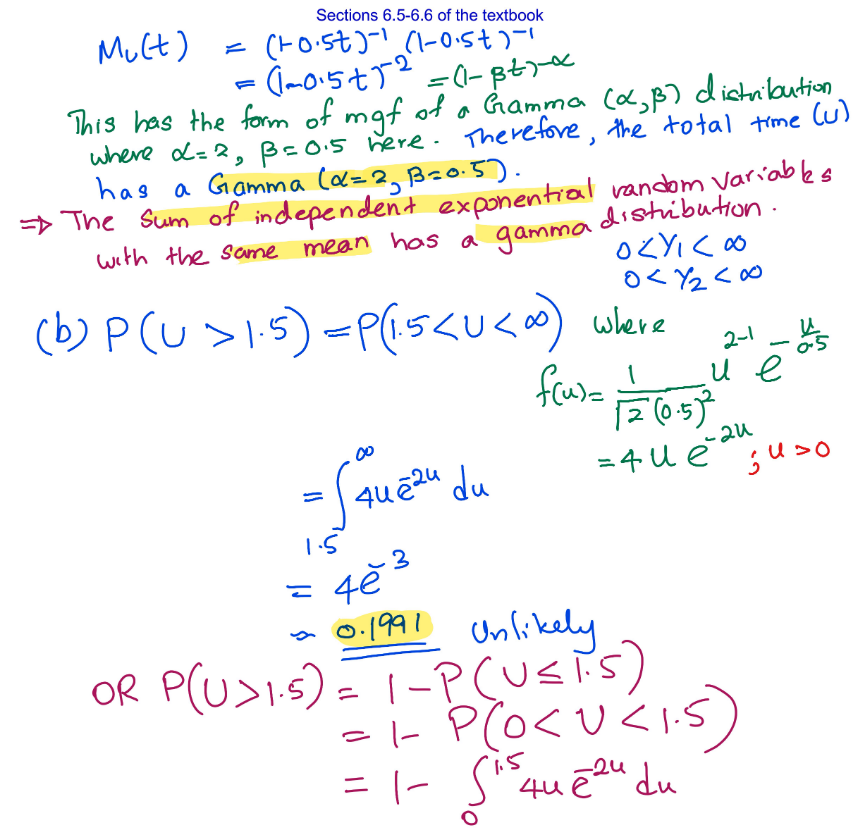 Sections 6.5-6.6 of the textbook
Mᵤ(t) = (1-0.5t)⁻¹ (1-0.5t)⁻¹
= (1-0.5t)⁻² = (1-βt)⁻ᵅ
This has the form of mgf of a Gamma (α,β) distribution
where α=2, β=0.5 here. Therefore, the total time (U)
has a Gamma (α=2, β=0.5).
⇒ The sum of independent exponential random variables
with the same mean has a gamma distribution.
0<Y₁<∞
0<Y₂<∞
(b) P(U >1.5) = P(1.5<U<∞) where
f(u) = 1/(Γ2 (0.5)²) u²⁻¹ e^(-u/0.5)
= 4 u e⁻²ᵘ ; u>0
= ∫_1.5^∞ 4u e⁻²ᵘ du
= 4e⁻³
≈ 0.1991 Unlikely
OR P(U>1.5) = 1-P(U≤1.5)
= 1- P(0<U<1.5)
= 1- ∫_0^1.5 4u e⁻²ᵘ du